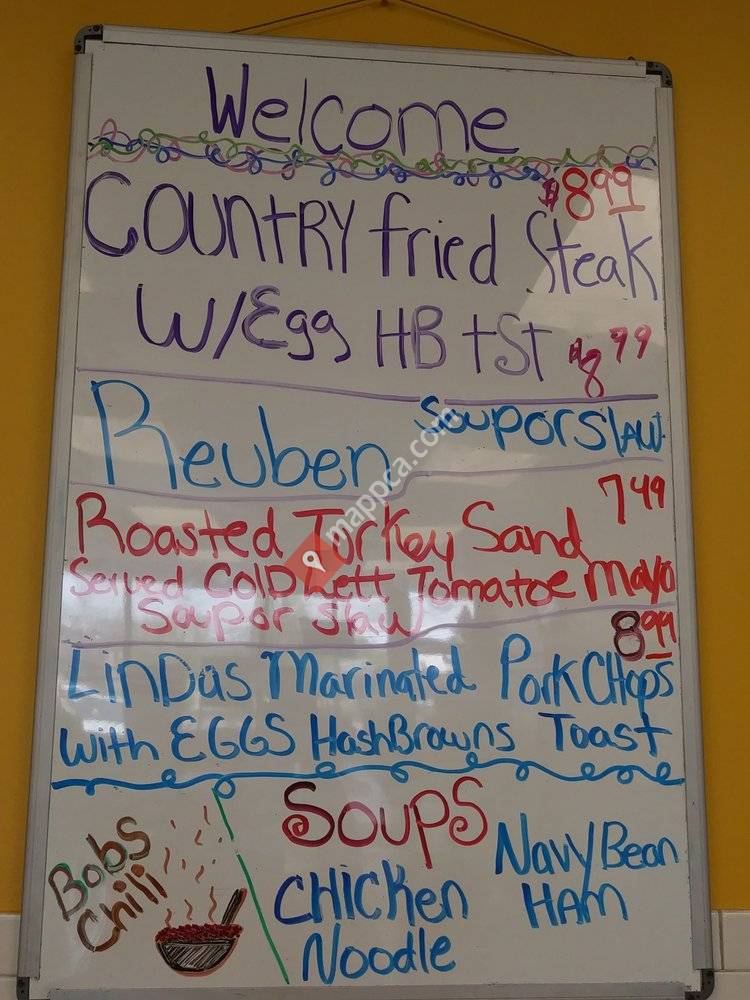 Welcome
$8.99
COUNTRY fried Steak
W/Egg HB tSt $8 99
Reuben Soup or Slaw
7 49
Roasted Turkey Sand
Served Cold W Lett Tomatoe Mayo
Soup or Slaw
8 99
LinDas Marinated Pork CHops
With EGGS HashBrowns Toast
Bobs
Chili
Soups
CHicken
Noodle
Navy Bean
HAm
mappca.com